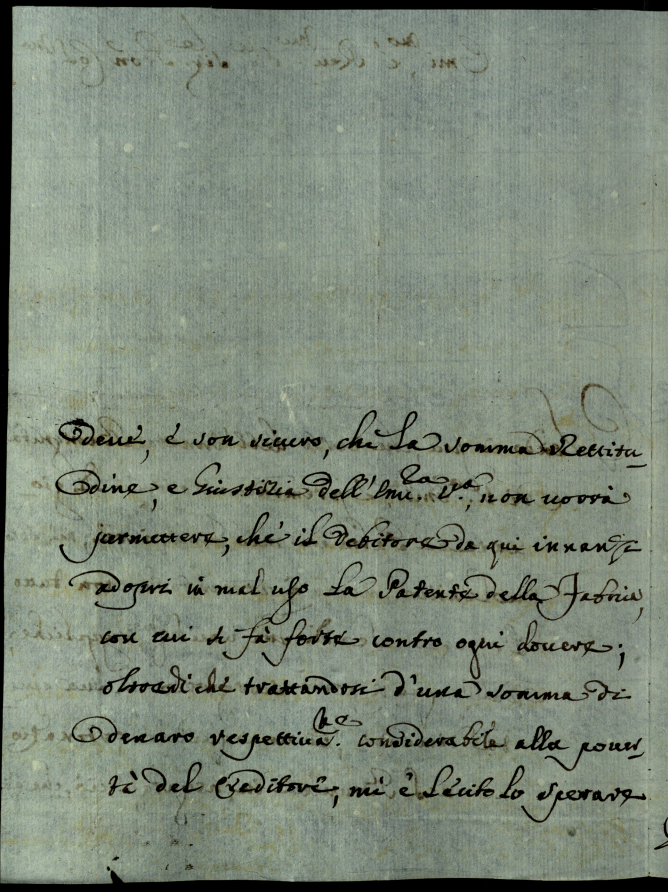 deve, e son sicuro, che la somma Rettitu-
dine, e Giustizia dell'Emi.za V.ra, non vorrà
permettere, che il Debitore da qui innanzi
adopri in mal uso la Patente della Fabrica,
con cui si fà forte contro ogni dovere;
oltredi che trattandosi d'una somma di
denaro respettiva.te considerabile alla pover-
tà del Creditore, mi è lecito lo sperare